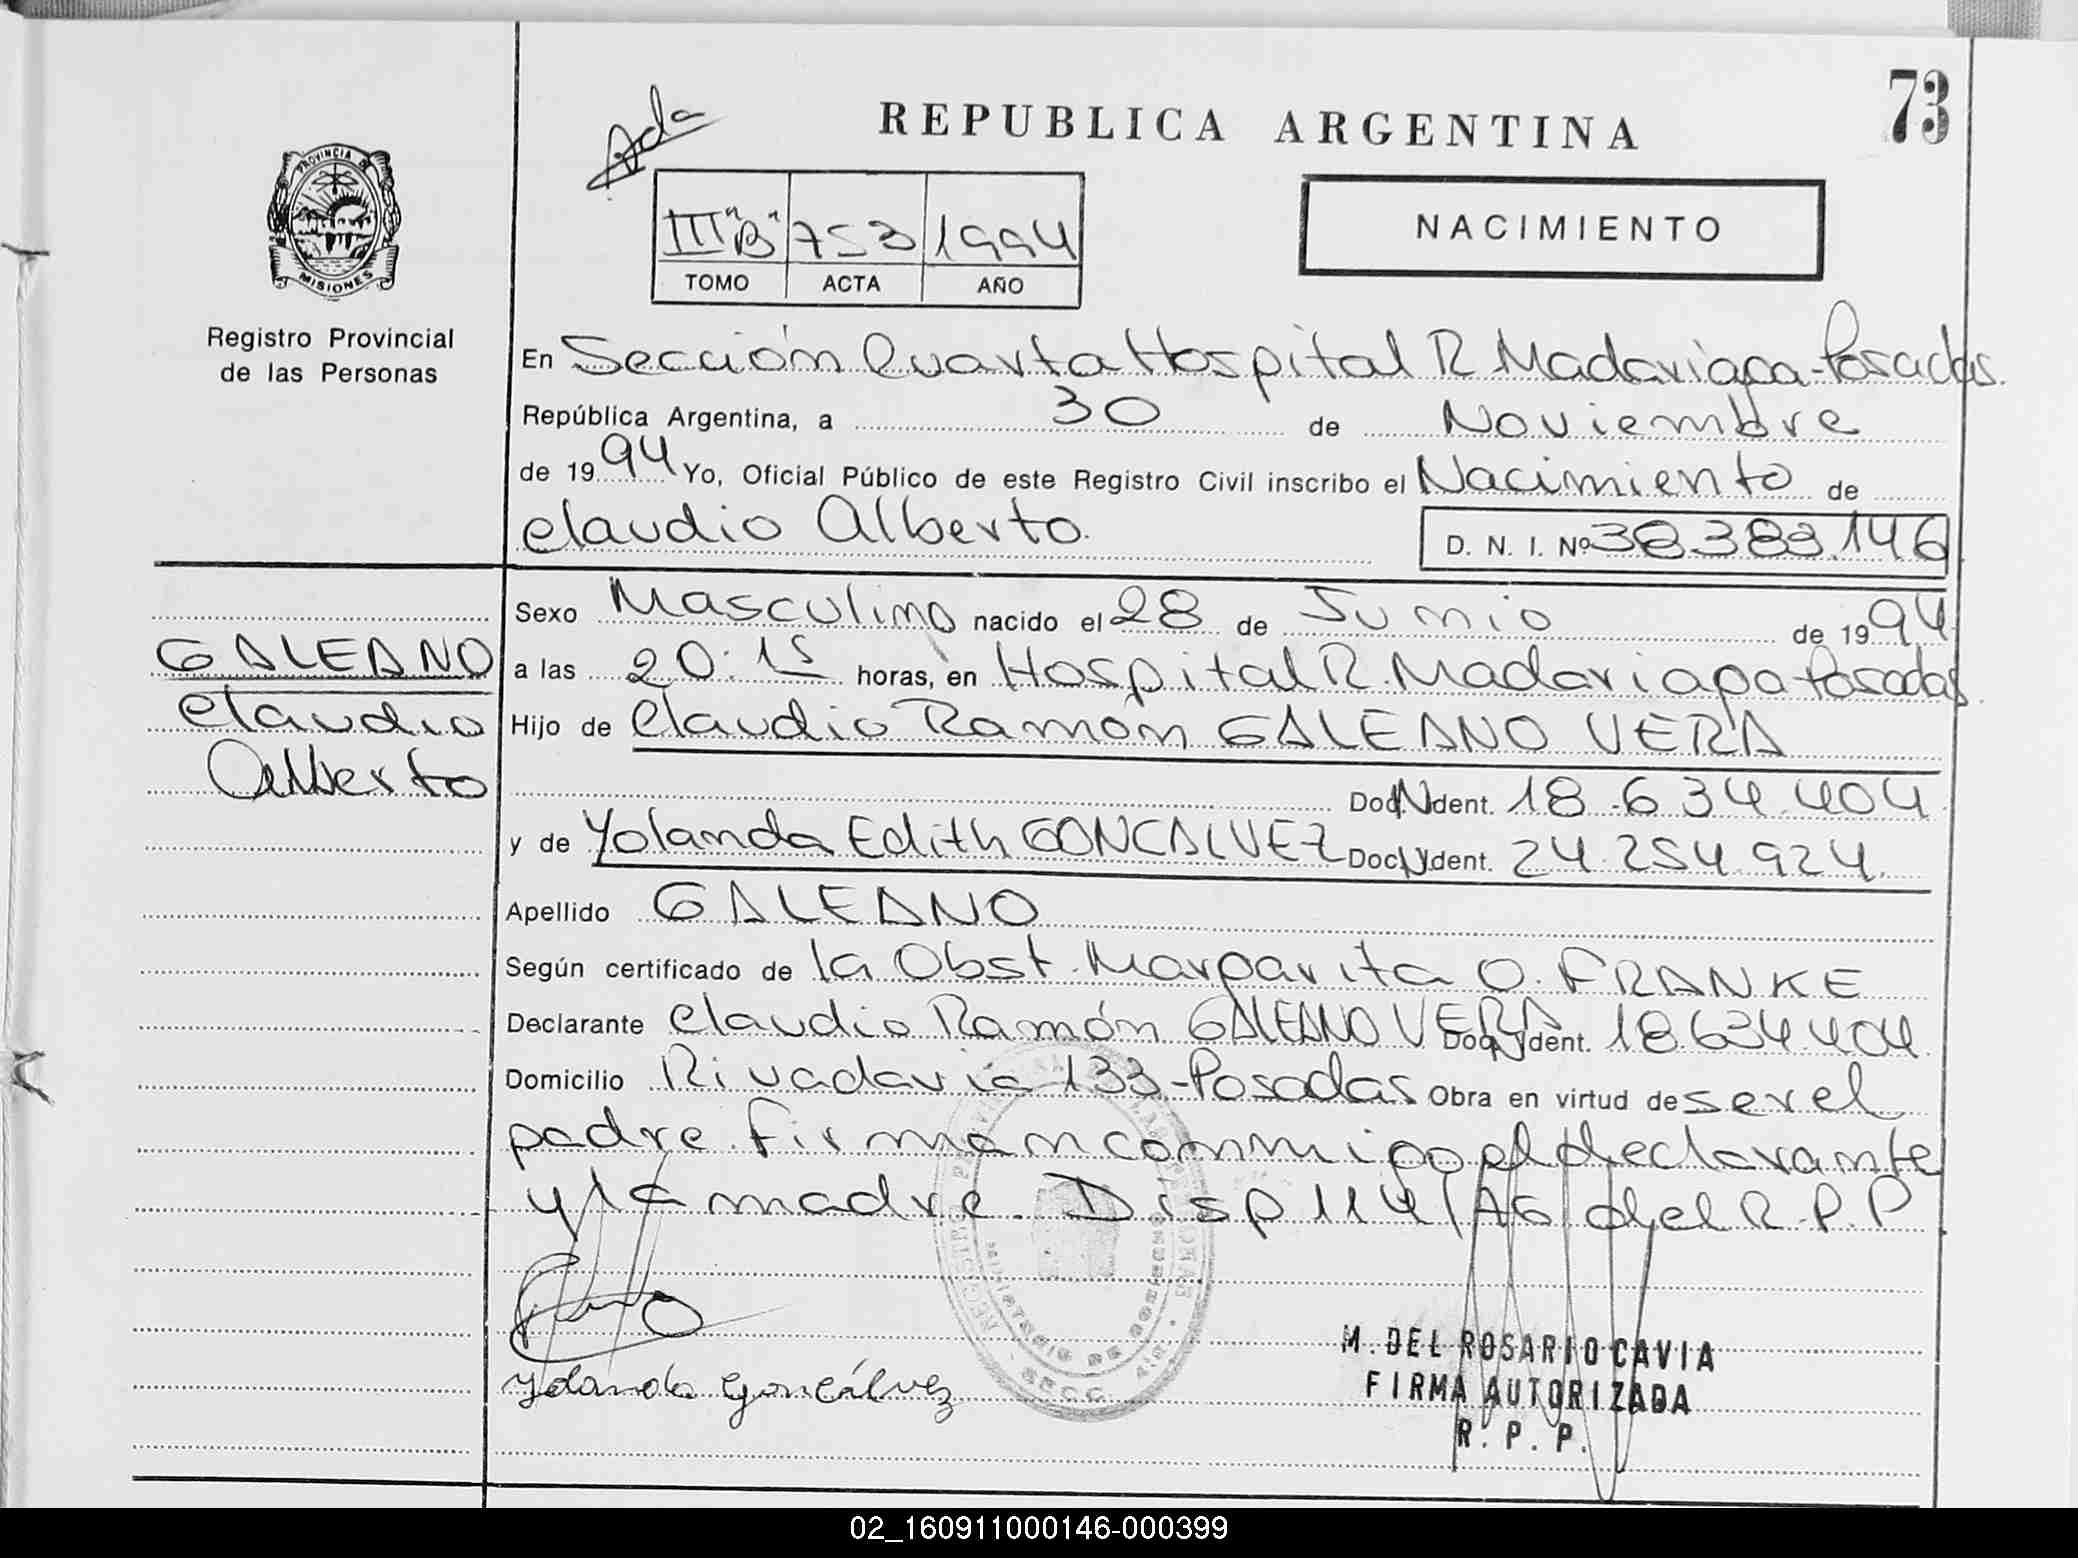 73
Ada
REPUBLICA ARGENTINA
PROVINCIA DE
MISIONES
III "B" 753 1994
TOMO ACTA AÑO
NACIMIENTO
Registro Provincial
de las Personas
En Sección Cuarta Hospital R. Madariaga-Posadas.
República Argentina, a 30 de Noviembre
de 1994 Yo, Oficial Público de este Registro Civil inscribo el Nacimiento de
Claudio Alberto.
D. N. I. Nº 38.383.146
Sexo Masculino nacido el 28 de Junio de 1994
GALEANO
Claudio
Alberto
a las 20:15 horas, en Hospital R. Madariaga Posadas.
Hijo de Claudio Ramón GALEANO VERA
Doc. Ident. 18.634.404
y de Yolanda Edith GONCALVEZ Doc. Ident. 24.254.924.
Apellido GALEANO
Según certificado de la Obst. Margarita O. FRANKE
Declarante Claudio Ramón GALEANO VERA Doc. Ident. 18.634.404
Domicilio Rivadavia 133-Posadas Obra en virtud de ser el
padre. Firman conmigo el declarante
y la madre. Disp 114/76 del R.P.P.
Yolanda Goncálvez
MINISTERIO DE GOBIERNO
SECC. 4ta.
M. DEL ROSARIO CAVIA
FIRMA AUTORIZADA
R. P. P.
02_160911000146-000399